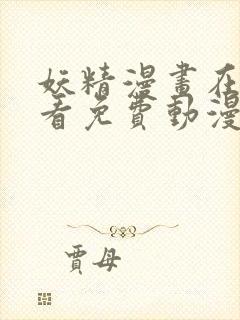 妖精漫畫在
看免費動漫
賈母